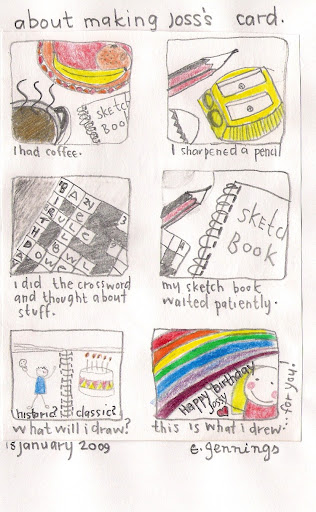 about making Joss's card.
SKETCH
BOOK
I had coffee.
I sharpened a pencil
I did the crossword
and thought about
stuff.
SKETCH
BOOK
my sketch book
waited patiently.
historic? classic?
what will i draw?
Happy birthday
Jossy
this is what i drew...for you!
15 january 2009
E. Jennings